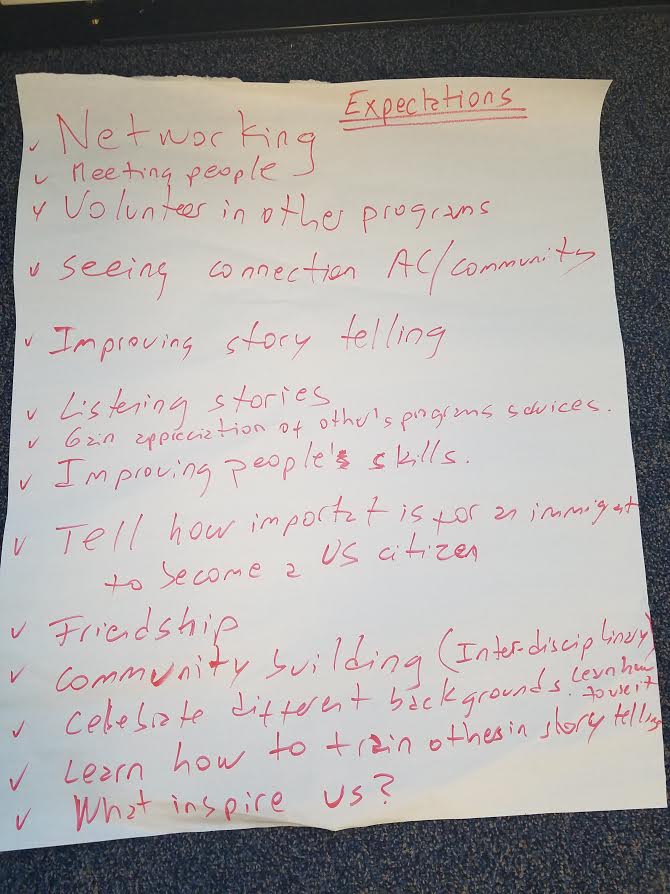 Expectations
✓ Networking
✓ Meeting people
✓ Volunteer in other programs
✓ Seeing connection AC/community
✓ Improving story telling
✓ Listening stories
✓ Gain appreciation of other's programs services.
✓ Improving people's skills.
✓ Tell how important is for an immigrant
to become a US citizen
✓ Friendship
✓ Community building (Inter-disciplinary)
✓ Celebrate different backgrounds. Learn how
to use it
✓ Learn how to train others in story telling
✓ What inspire us?